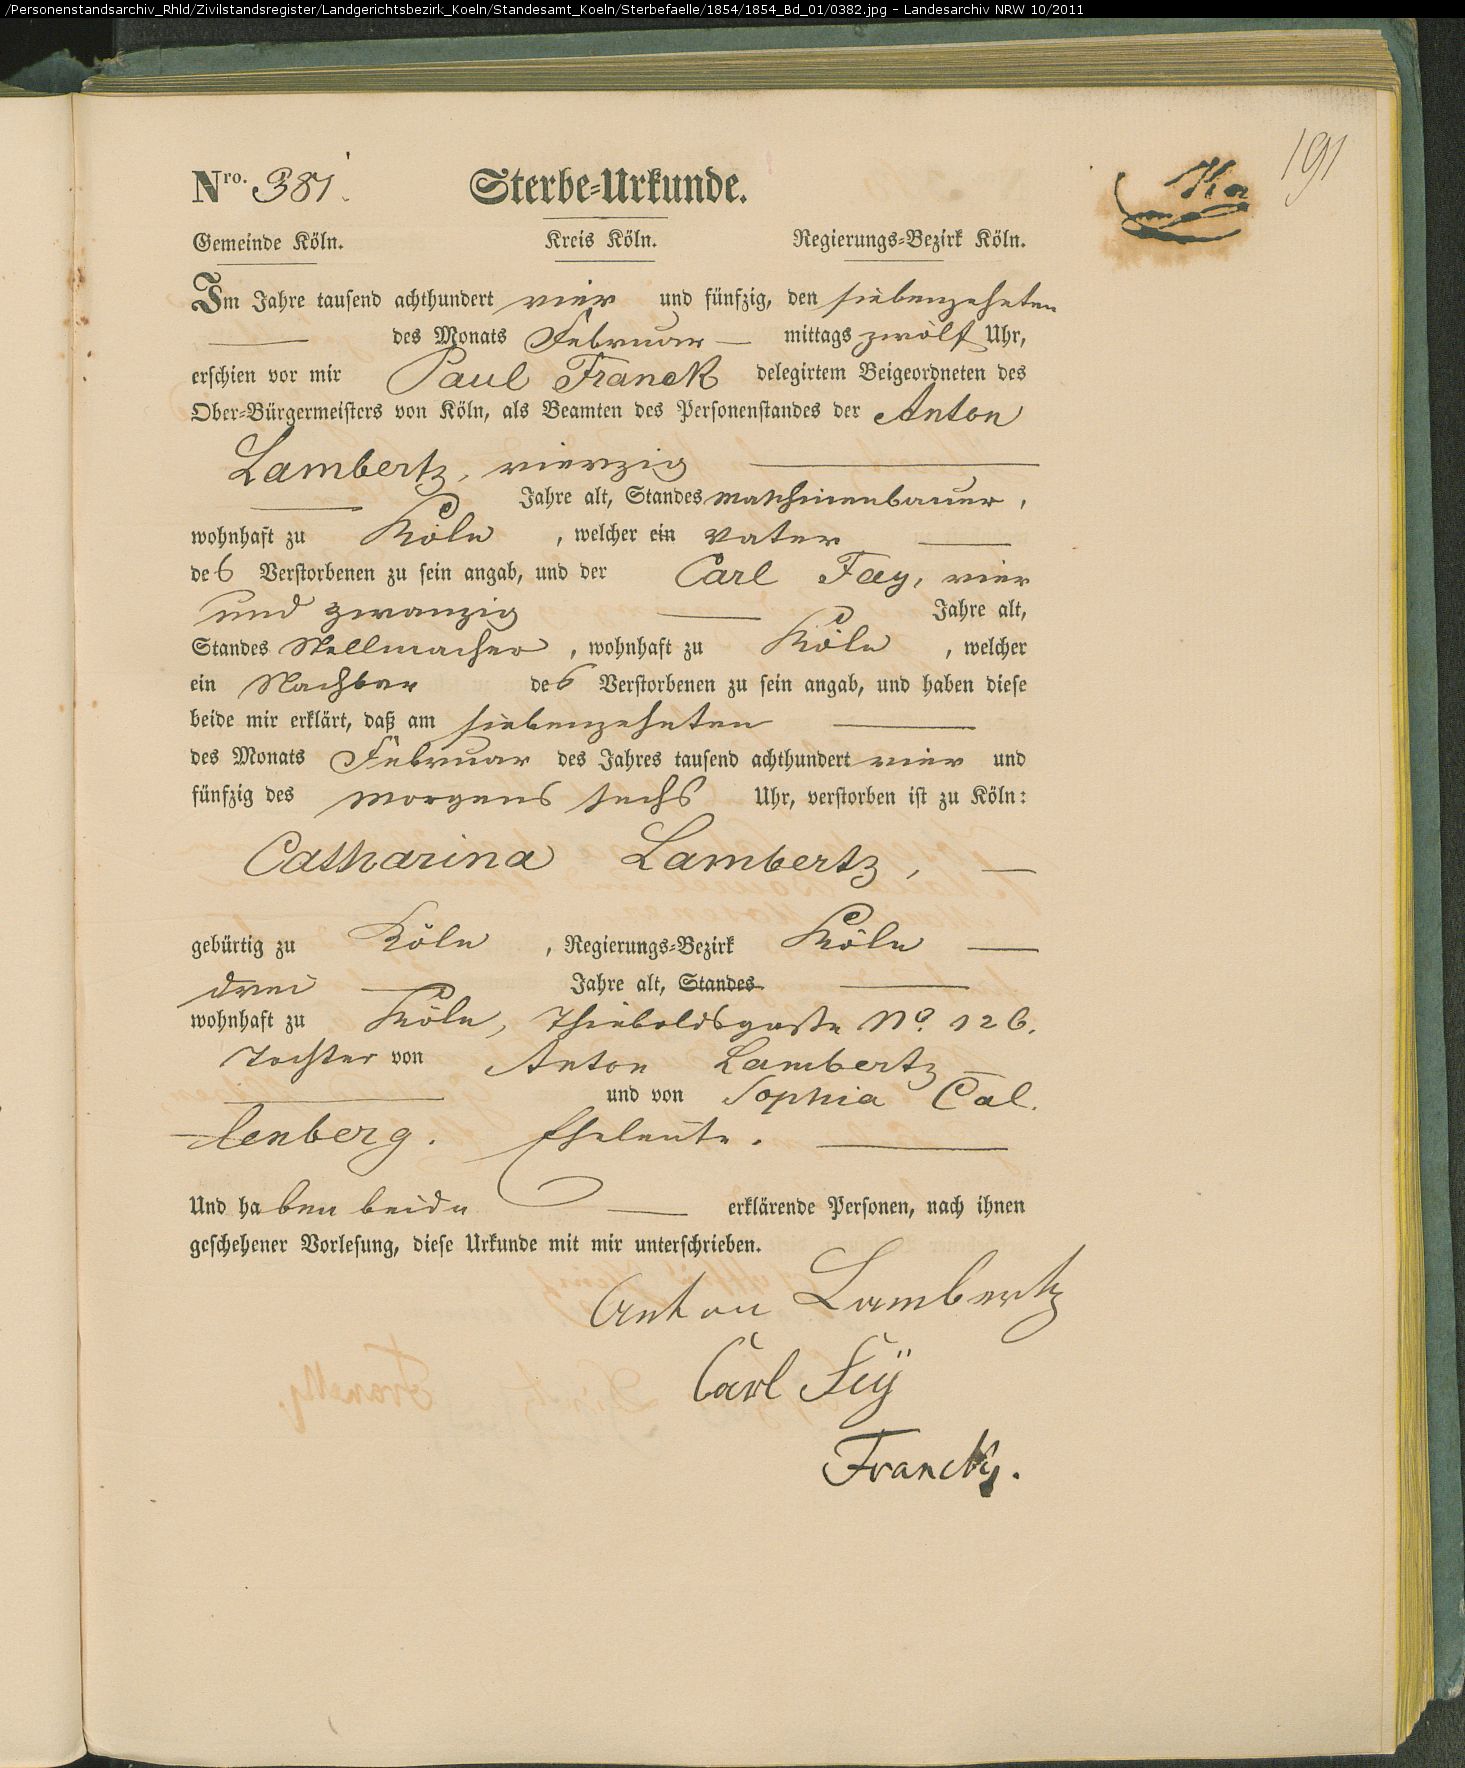 /Personenstandsarchiv_Rhld/Zivilstandsregister/Landgerichtsbezirk_Koeln/Standesamt_Koeln/Sterbefaelle/1854/1854_Bd_01/0382.jpg - Landesarchiv NRW 10/2011
191
Nro. 381. Sterbe-Urkunde.
Gemeinde Köln. Kreis Köln. Regierungs-Bezirk Köln.
Im Jahre tausend achthundert vier und fünfzig, den siebenzehnten
des Monats Februar mittags zwölf Uhr,
erschien vor mir Paul Franck delegirtem Beigeordneten des
Ober-Bürgermeisters von Köln, als Beamten des Personenstandes der Anton
Lambertz, vierzig
Jahre alt, Standes Maschinenbauer,
wohnhaft zu Köln, welcher ein Vater
des Verstorbenen zu sein angab, und der Carl Fay, vier
und zwanzig Jahre alt,
Standes Stellmacher, wohnhaft zu Köln, welcher
ein Nachbar des Verstorbenen zu sein angab, und haben diese
beide mir erklärt, daß am siebenzehnten
des Monats Februar des Jahres tausend achthundert vier und
fünfzig des Morgens sechs Uhr, verstorben ist zu Köln:
Catharina Lambertz,
gebürtig zu Köln, Regierungs-Bezirk Köln
drei Jahre alt, Standes
wohnhaft zu Köln, Thieboldsgasse No. 126.
Tochter von Anton Lambertz
und von Sophia Cal.
lenberg. Eheleute.
Und haben beide erklärende Personen, nach ihnen
geschehener Vorlesung, diese Urkunde mit mir unterschrieben.
Anton Lambertz
Carl Fey
Franck.